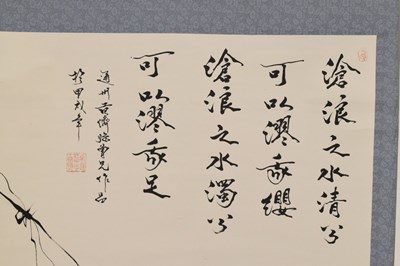 滄浪之水清兮
可以濯我纓
滄浪之水濁兮
可以濯我足
通州
兄作品
於甲